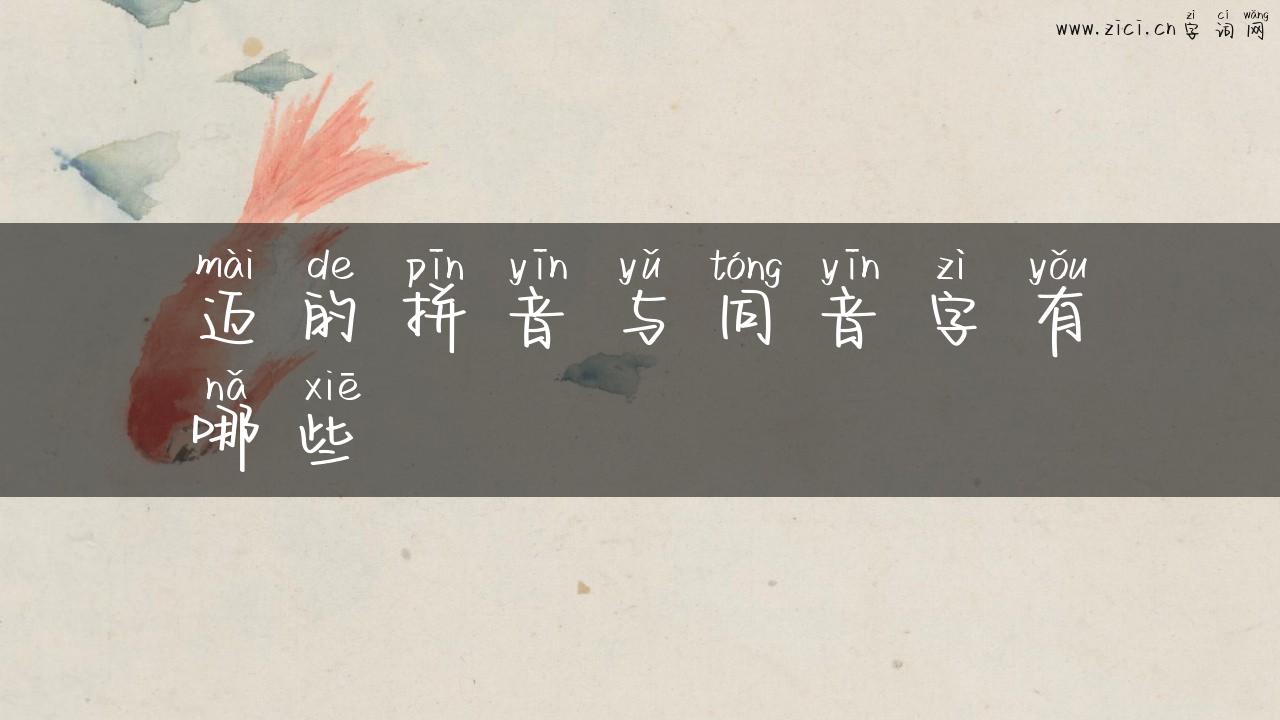 zì cí wǎng
www.zici.cn字词网
mài de pīn yīn yǔ tóng yīn zì yǒu
迈的拼音与同音字有
nǎ xiē
哪些